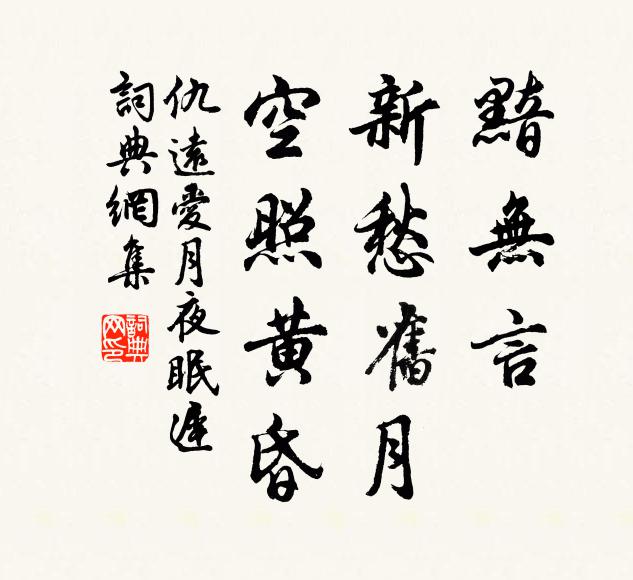 黯無言
新愁舊月
空照黄昏
仇遠愛月夜眠遲
詞典網集
詞典
网印